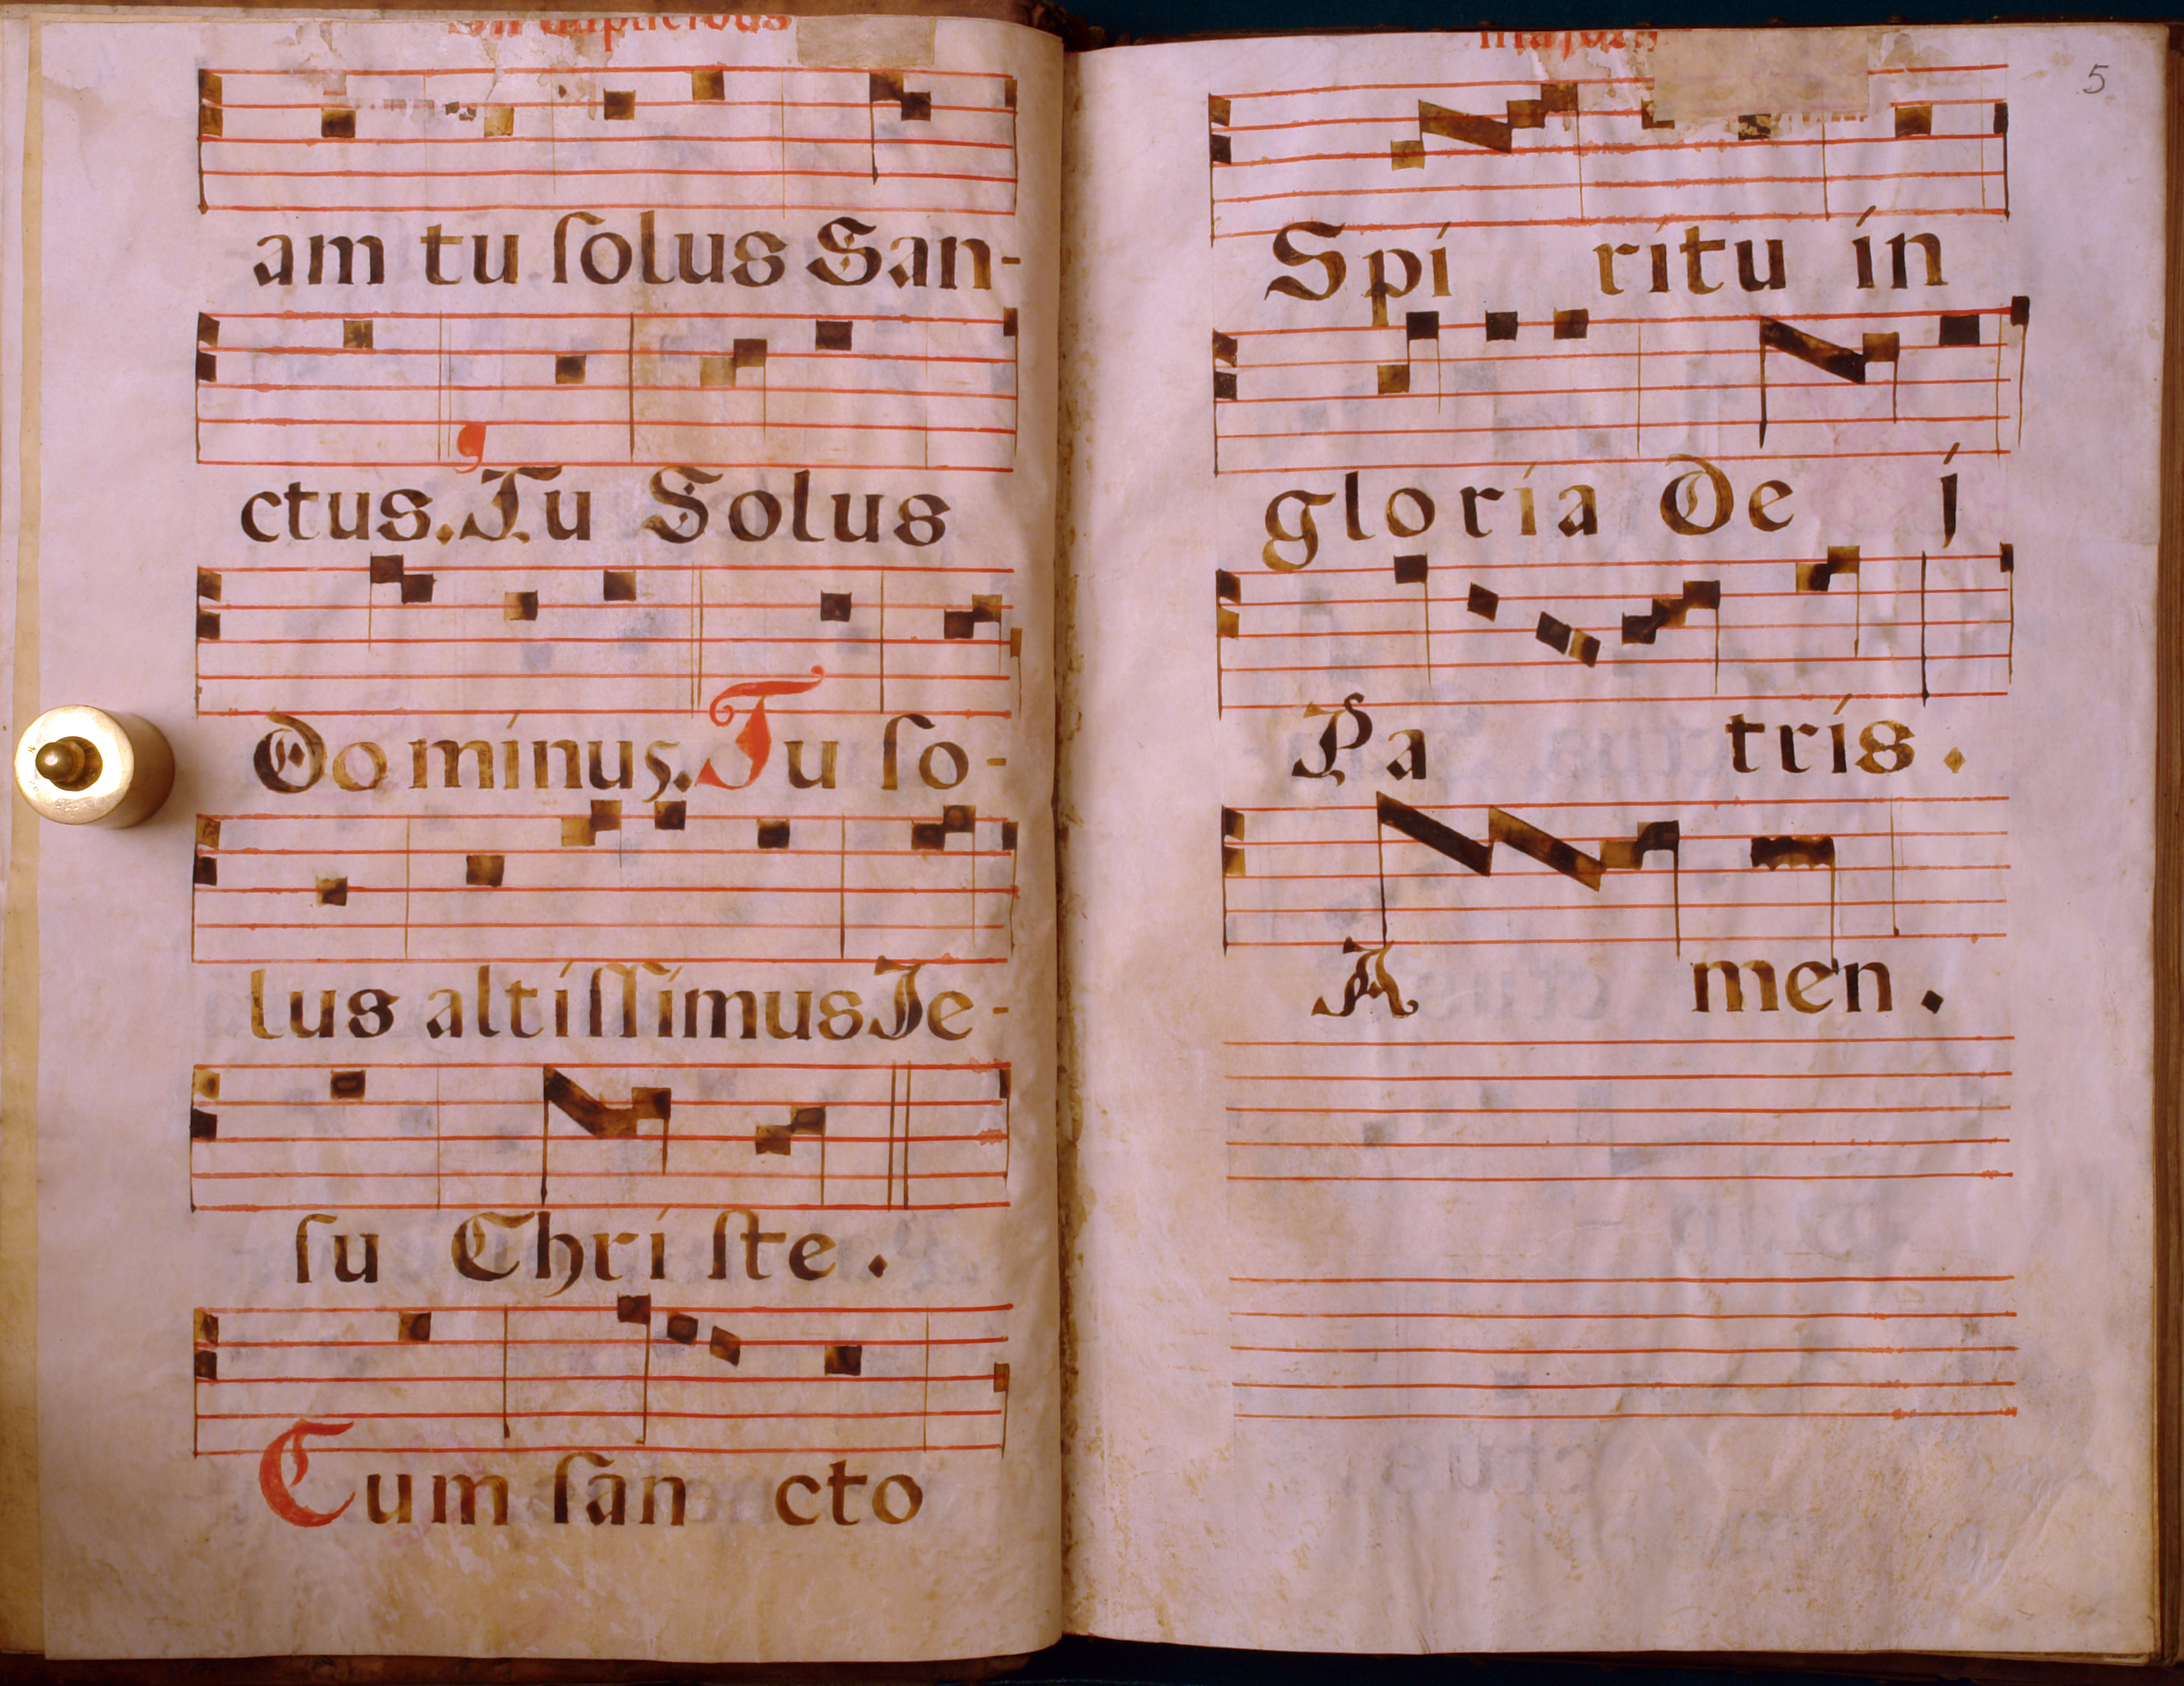 In duplicibus
am tu ſolus San-
ctus. Tu Solus
Dominus. Tu ſo-
lus altiſſimus Je-
ſu Chriſte.
Cum ſan cto
majoris
5
Spi ritu in
gloria De i
Pa tris.
A men.